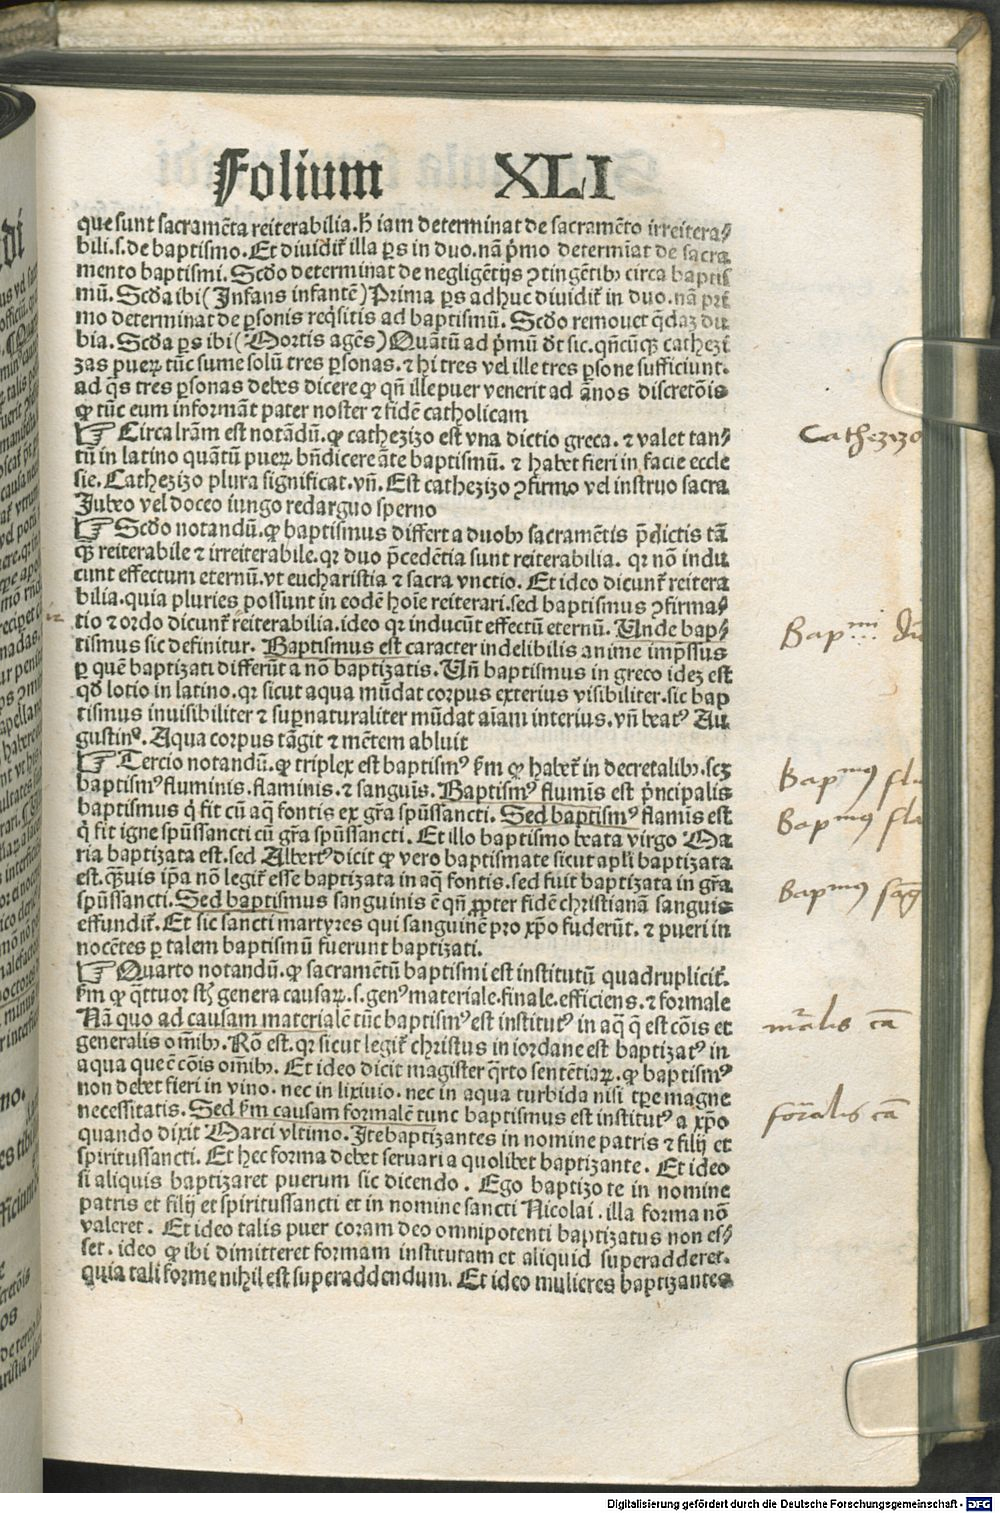 Folium XLI
que sunt sacramẽta reiterabilia. h̃ iam determinat de sacramẽto irreitera⸗
bili.s.de baptismo. Et diuidit̃ illa ꝑs in duo. nã p̃mo determĩat de sacra
mento baptismi. Scd̃o determinat de negligẽtijs ꝯtingẽtibꝫ circa baptis
mũ. Scd̃a ibi (Infans infantẽ) Prima ꝑs adhuc diuidit̃ in duo. nã pri
mo determinat de ꝑsonis reqͥsitis ad baptismũ. Scd̃o remouet qͥdaꝫ du
bia. Scd̃a ꝑs ibi (Mortis agẽs) Quãtũ ad p̃mũ dt̃ sic. qñcũqꝫ cathezi
zas pueꝝ tũc sume solũ tres ꝑsonas. ⁊ hi tres vel ille tres ꝑsone sufficiunt.
ad q̃s tres ꝑsonas debes dicere ꝙ qñ ille puer venerit ad ãnos discretõis
ꝙ tũc eum informãt pater noster ⁊ fidẽ catholicam
☞ Circa lr̃am est notãdũ. ꝙ cathezizo est vna dictio greca. ⁊ valet tan⸗
tũ in latino quãtũ pueꝝ bñdicere ãte baptismũ. ⁊ habet fieri in facie eccle
sie. Cathezizo plura significat. vñ. Est cathezizo ꝯfirmo vel instruo sacra
Jubeo vel doceo iungo redarguo sperno
☞ Scd̃o notandũ. ꝙ baptismus differt a duobꝫ sacramẽtis p̃dictis tã
qꝫ reiterabile ⁊ irreiterabile. qꝛ duo p̃cedẽtia sunt reiterabilia. qꝛ nõ indu
cunt effectum eternũ. vt eucharistia ⁊ sacra vnctio. Et ideo dicunt̃ reitera
bilia. quia pluries possunt in eodẽ hoĩe reiterari. sed baptismus ꝯfirma⸗
tio ⁊ ordo dicunt̃ reiterabilia. ideo qꝛ inducũt effectũ eternũ. Unde bap⸗
tismus sic definitur. Baptismus est caracter indelibilis anime imp̃ssus
ꝑ quẽ baptizati differũt a nõ baptizatis. Uñ baptismus in greco ideꝫ est
qd̃ lotio in latino. qꝛ sicut aqua mũdat corpus exterius visibiliter. sic bap
tismus inuisibiliter ⁊ suꝑnaturaliter mũdat aĩam interius. vñ beatꝰ Au
gustinꝰ. Aqua corpus tãgit ⁊ mẽtem abluit
☞ Tercio notandũ. ꝙ triplex est baptismꝰ ẜm ꝙ habet̃ in decretalibꝫ. scꝫ
baptismꝰ fluminis. flaminis. ⁊ sanguĩs. Baptismꝰ flumĩs est p̃ncipalis
baptismus q̃ fit cũ aq̃ fontis ex gr̃a spũssancti. Sed baptismꝰ flamis est
q̃ fit igne spũssancti cũ gr̃a spũssancti. Et illo baptismo beata virgo Ma
ria baptizata est. sed Albertꝰ dicit ꝙ vero baptismate sicut apl̃i baptizata
est. qꝫuis ip̃a nõ legit̃ esse baptizata in aq̃ fontis. sed fuit baptizata in gr̃a
spũssancti. Sed baptismus sanguinis ẽ qñ ꝓpter fidẽ christianã sanguis
effundit̃. Et sic sancti martyres qui sanguinẽ pro xp̃o fuderũt. ⁊ pueri in
nocẽtes ꝑ talem baptismũ fuerunt baptizati.
☞ Quarto notandũ. ꝙ sacramẽtũ baptismi est institutũ quadruplicit̃.
ẜm ꝙ q̃ttuor st̃ genera causaꝝ. s. genꝰ materiale. finale. efficiens. ⁊ formale
Nã quo ad causam materialẽ tũc baptismꝰ est institutꝰ in aq̃ q̃ est cõis et
generalis om̃ibꝫ. Rõ est. qꝛ sicut legit̃ christus in iordane est baptizatꝰ in
aqua que ẽ cõis om̃ibꝫ. Et ideo dicit magister q̃rto sentẽtiaꝝ. ꝙ baptismꝰ
non debet fieri in vino. nec in lixiuio. nec in aqua turbida nisi tꝑe magne
necessitatis. Sed ẜm causam formalẽ tunc baptismus est institutꝰ a xp̃o
quando dixit Marci vltimo. Ite baptizantes in nomine patris ⁊ filij et
spiritussancti. Et hec forma debet seruari a quolibet baptizante. Et ideo
si aliquis baptizaret puerum sic dicendo. Ego baptizo te in nomine
patris et filij et spiritussancti et in nomine sancti Nicolai. illa forma nõ
valeret. Et ideo talis puer coram deo omnipotenti baptizatus non es⸗
set. ideo ꝙ ibi dimitteret formam institutam et aliquid superadderet.
quia tali forme nihil est superaddendum. Et ideo mulieres baptizantes
Cathezizo
Bapᵐⁱ
Bapᵐꝰ flu
Bapᵐꝰ fla
Bapᵐꝰ sãg
mr̃alis cã
for̃alis cã
Digitalisierung gefördert durch die Deutsche Forschungsgemeinschaft - DFG